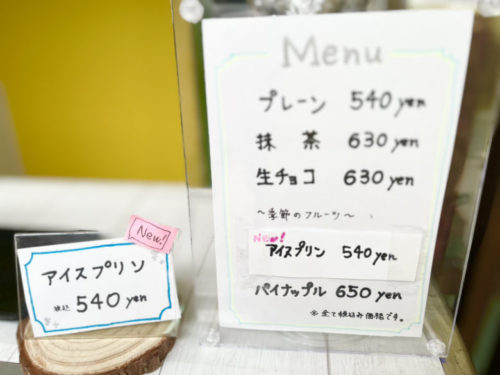 Menu
プレーン 540 yen
抹茶 630 yen
生チョコ 630 yen
〜季節のフルーツ〜
New!
アイスプリン 540 yen
パイナップル 650 yen
※全て税込み価格です。
New!
アイスプリン
税込 540 yen